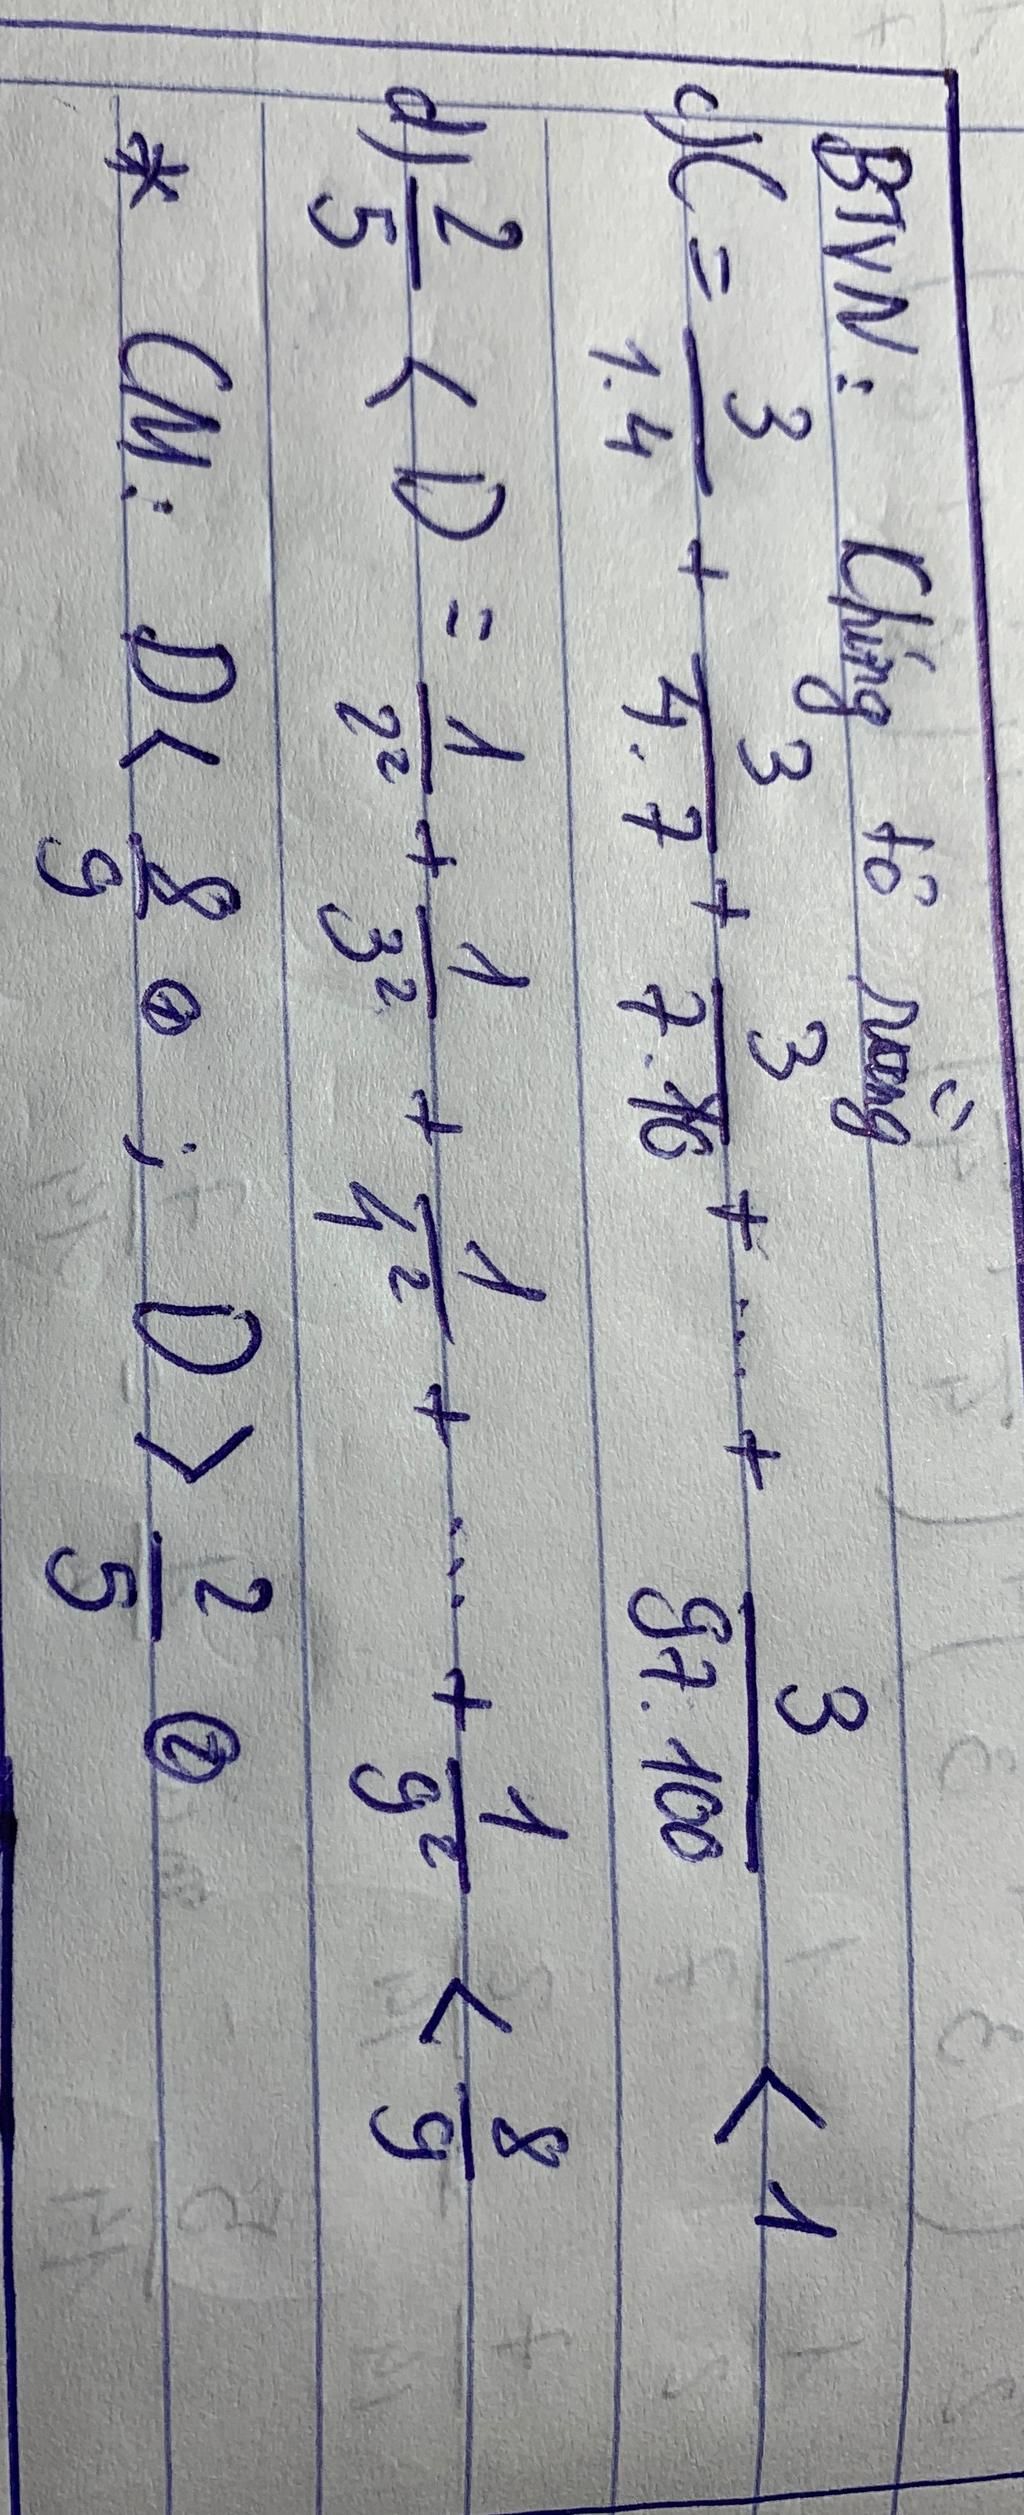 BTVN: Chứng tỏ rằng
c) C = 3/1.4 + 3/4.7 + 3/7.10 + ... + 3/97.100 < 1
d) 2/5 < D = 1/2² + 1/3² + 1/4² + ... + 1/9² < 8/9
* CM: D < 8/9 ① ; D > 2/5 ②